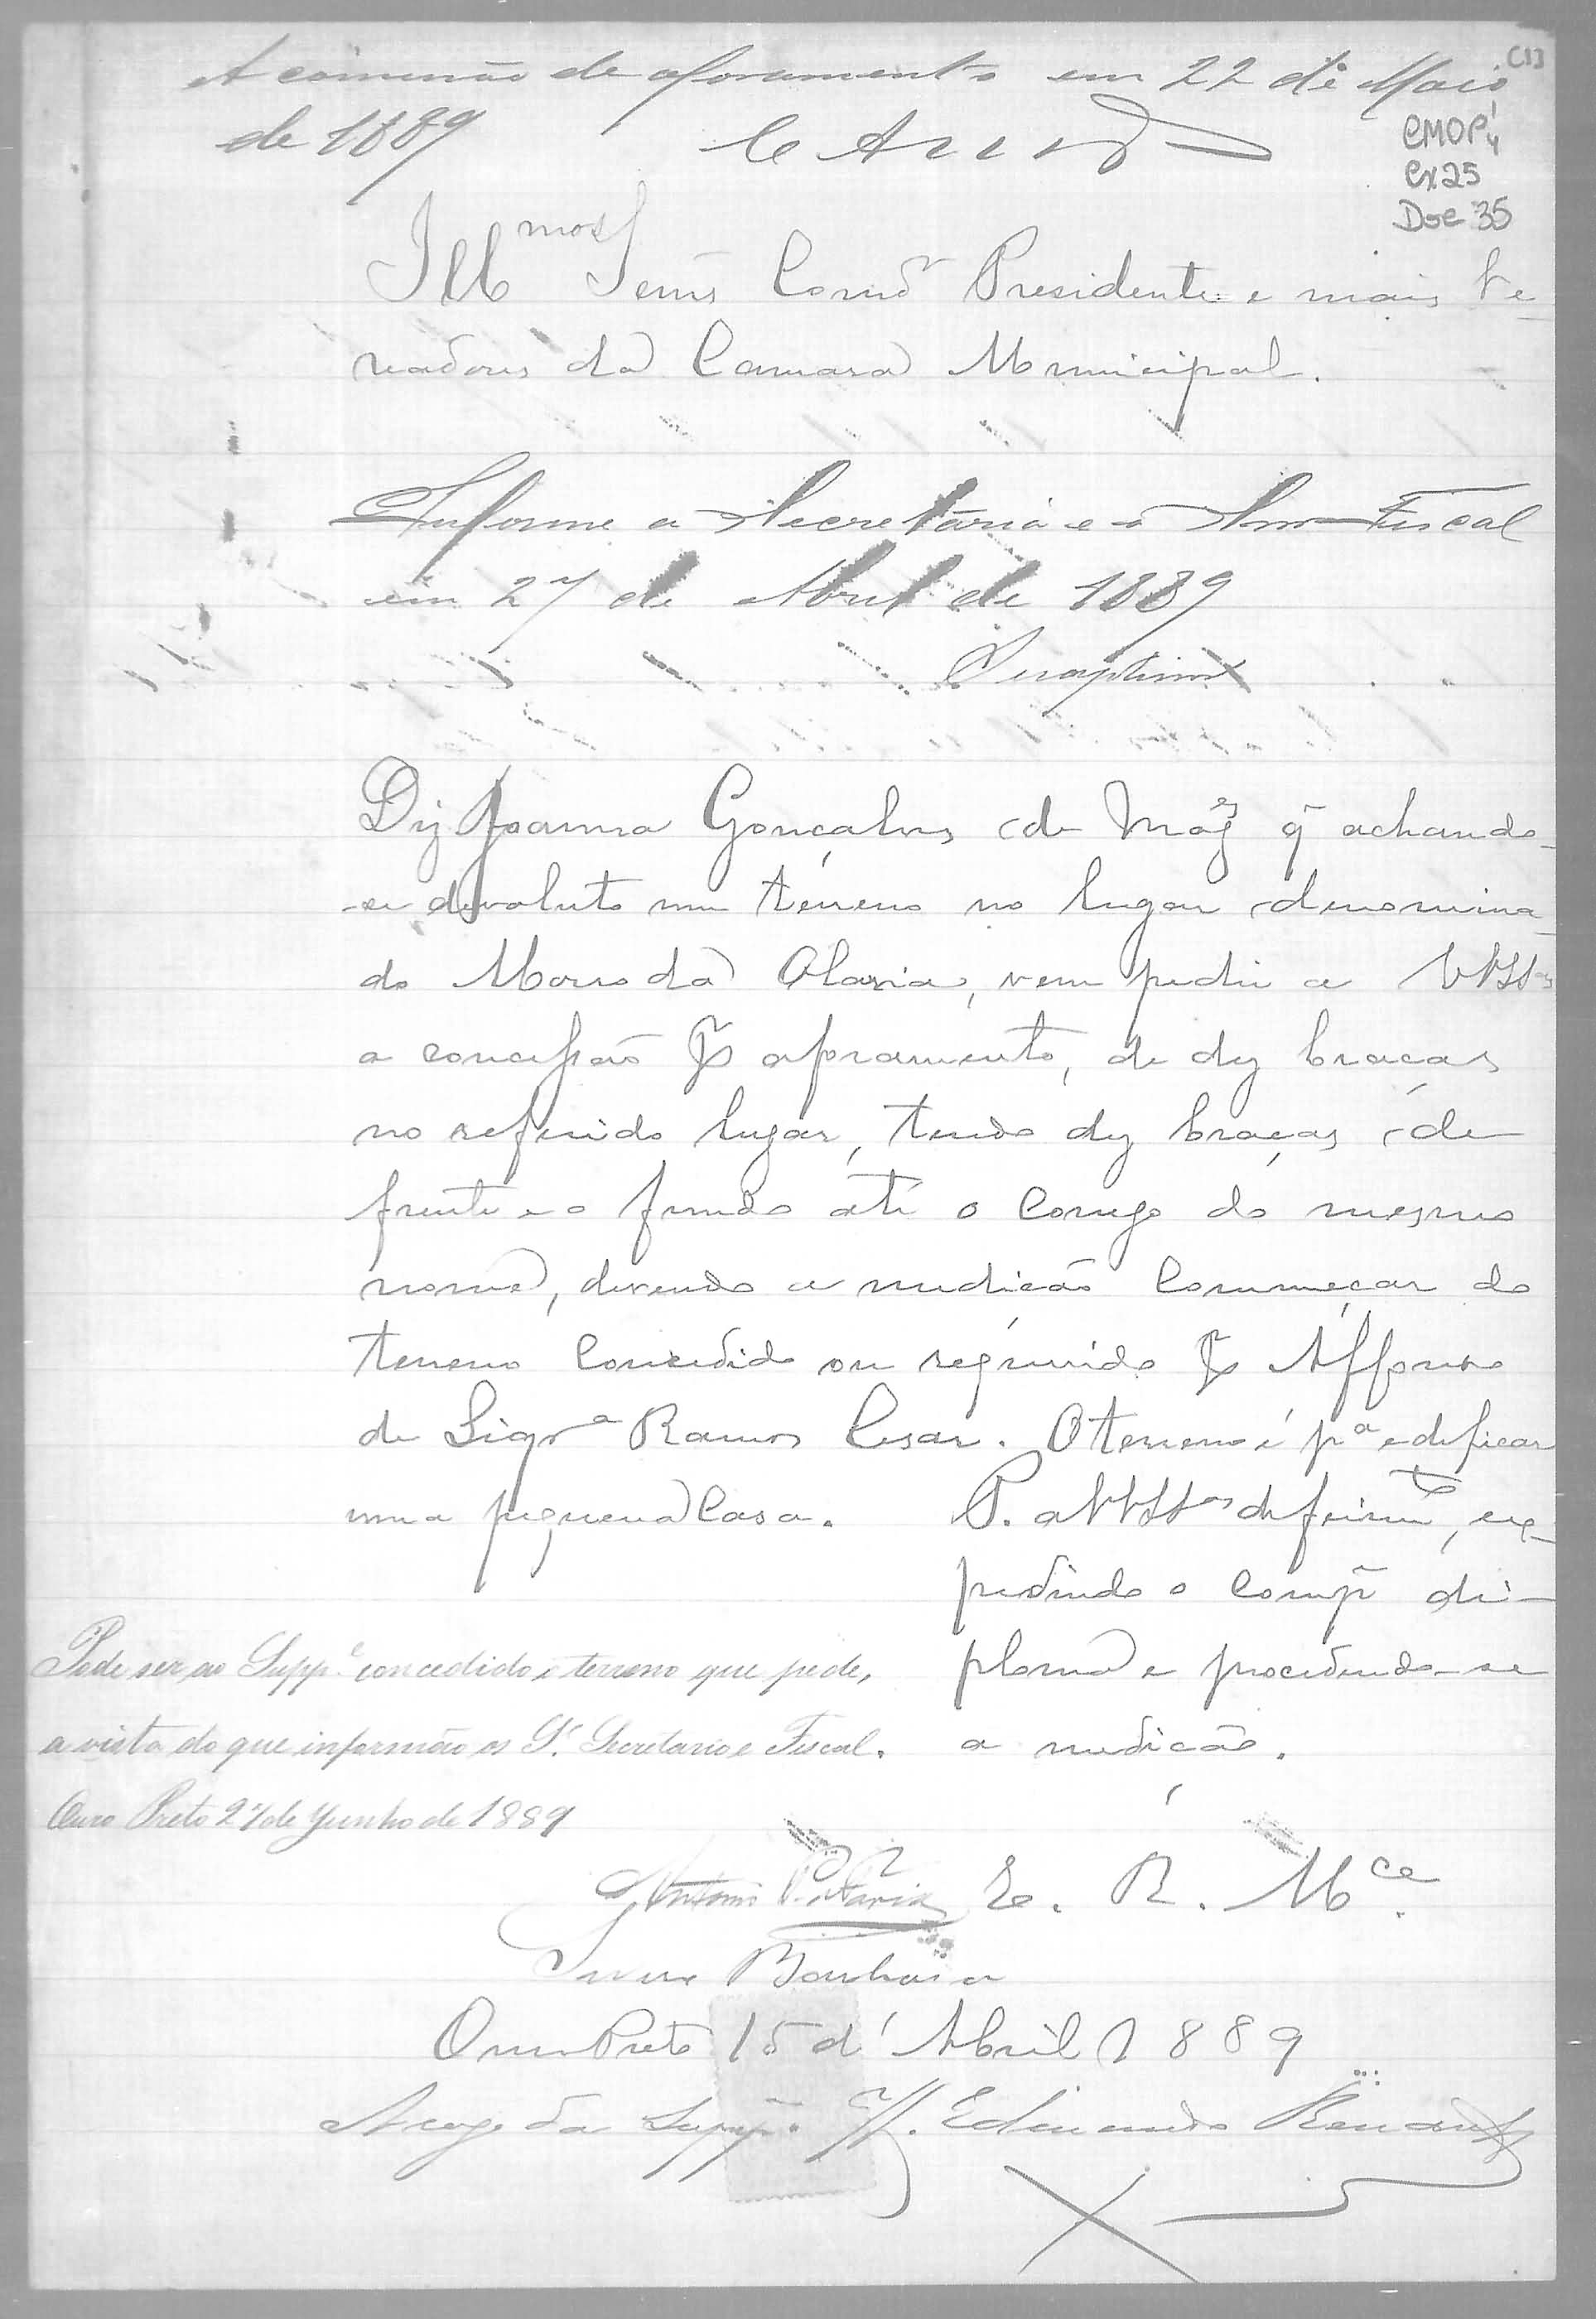 A commissão de aforamento em 22 de Maio
de 1889
(1)
CMOP
Cx 25
Doc 35
Illmos Senrs Comdr Presidente e mais Ve-
readores da Camara Municipal.
Informe a Secretaria e o Snr Fiscal
em 27 de Abril de 1889
Diz Joanna Gonçalves de q̃ achando-
-se devoluto um terreno no lugar denomina-
do Morro da Olaria, vem pedir a VVSSas
a concessão p̃ aforamento, de dez braças
no referido lugar, tendo dez braças de
frente e o fundo até o Corrego do mesmo
nome, devendo a medição Commeçar do
terreno Concedido ou requerido p̃ Affonso
de Figra Ramos Cesar. O terreno é pa edificar
uma pequena Casa. P. a VVSSas deferimto, ex-
pedindo o Comp̃ di-
ploma e procedendo-se
a medição.
Pode ser ao Suppe concedido o terreno que pede,
a vista do que informão os Srs Secretario e Fiscal.
Ouro Preto 27 de Junho de 1889
Antonio
E. R. Mce.
Barbosa
Ouro Preto 15 d' Abril 1889
A rogo da Supp̃e. Edmundo